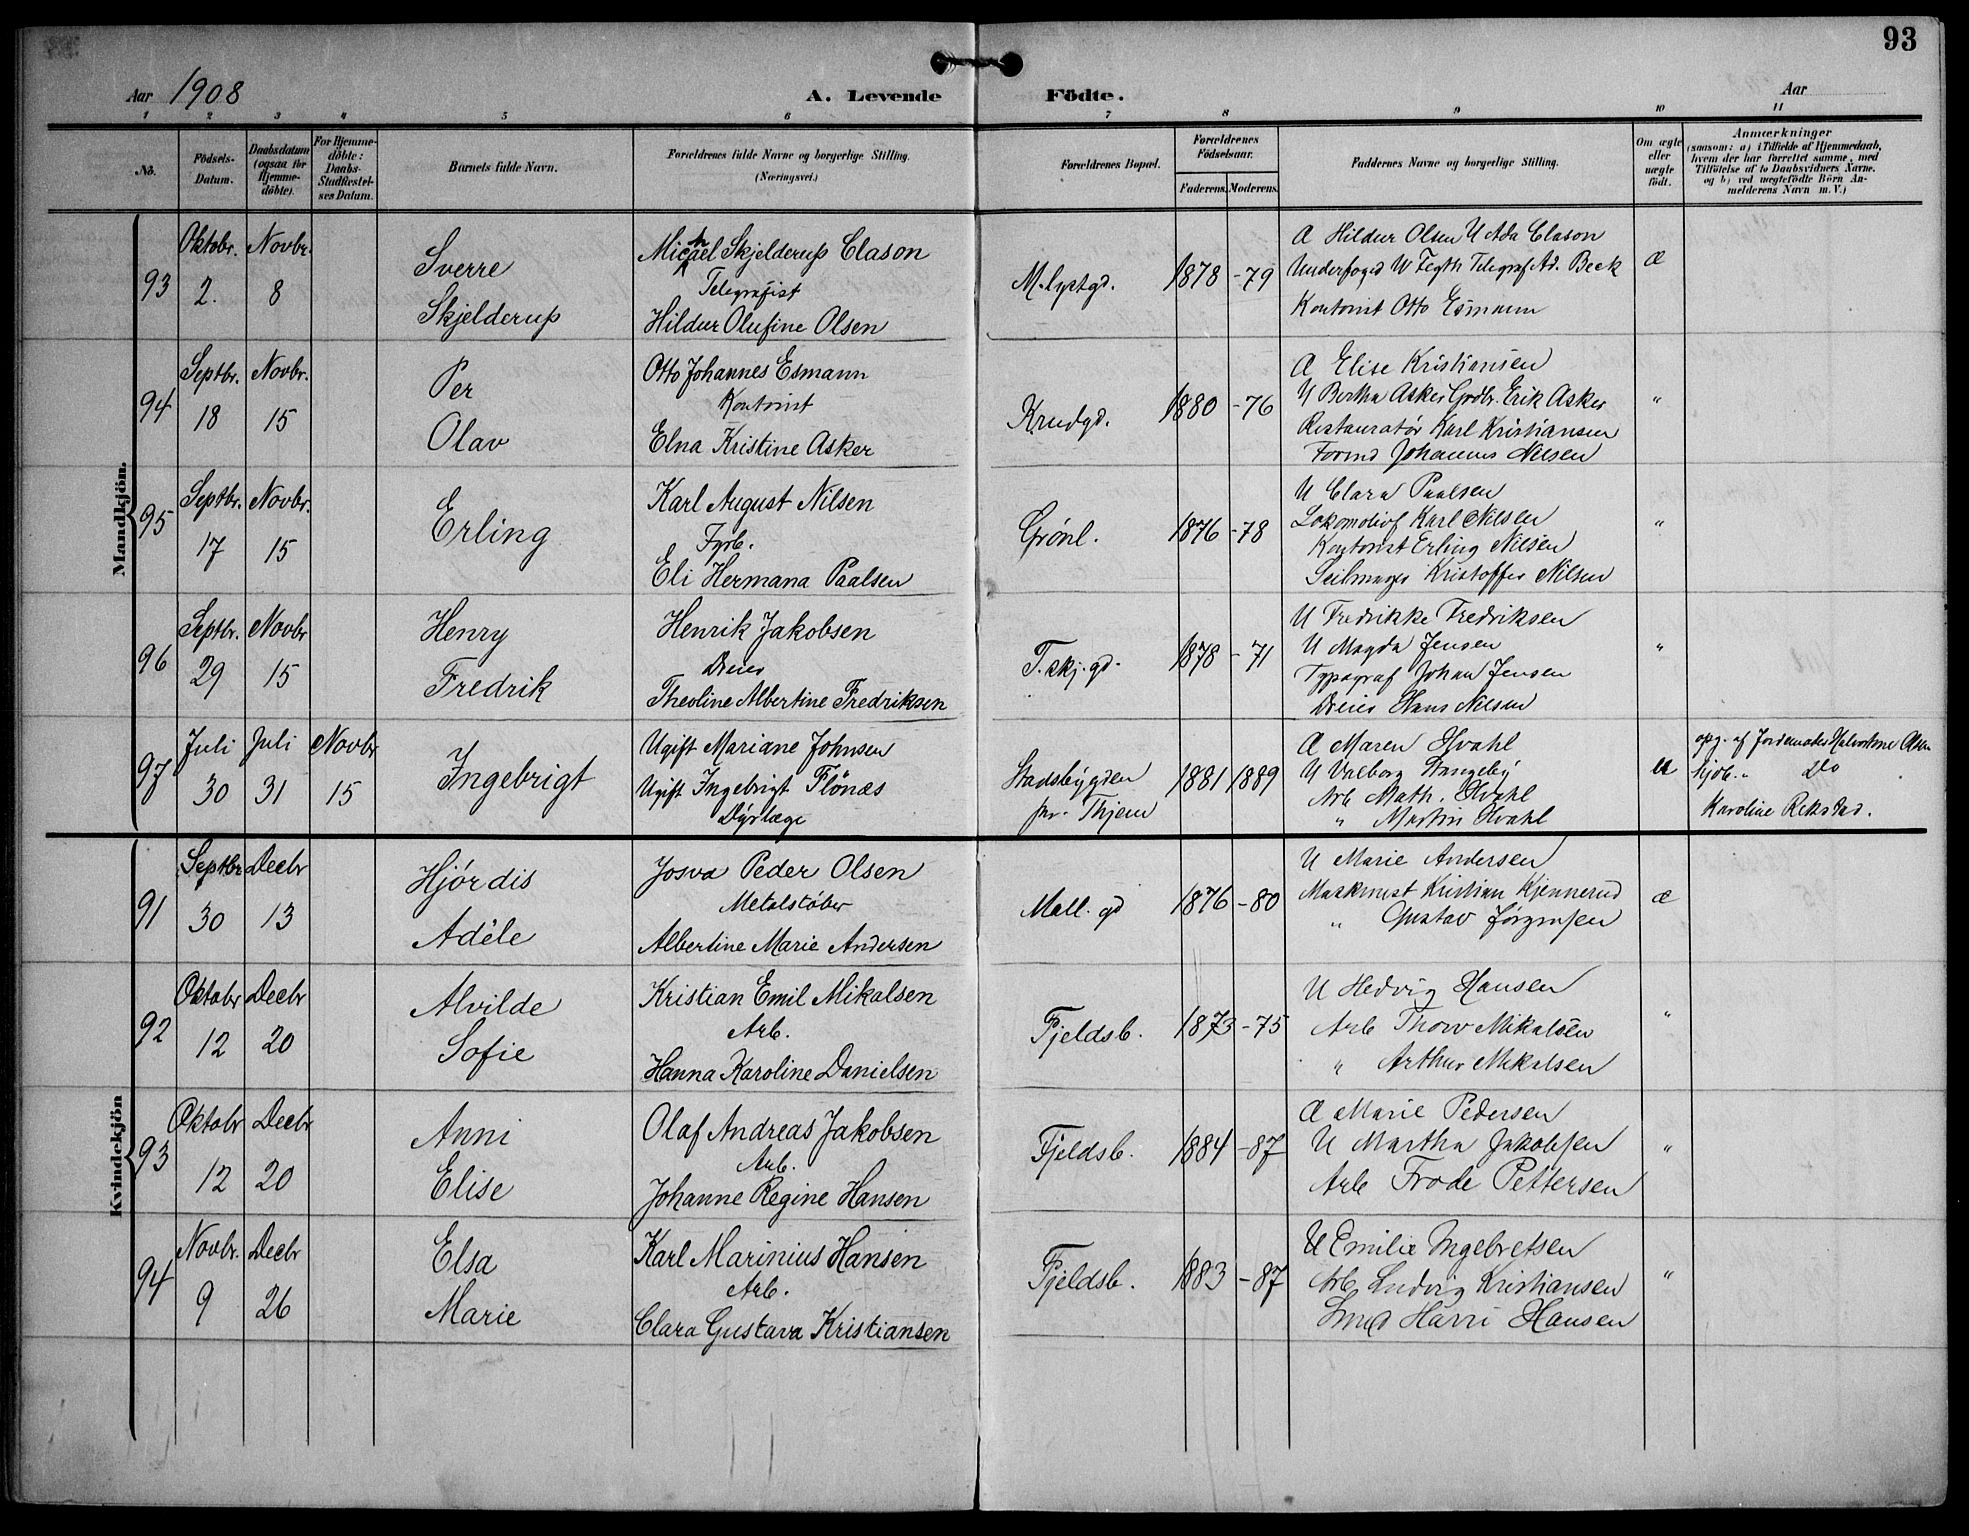 93
Aar 1908
A. Levende Födte.
Aar
1 2 3 4 5 6 7 8 9 10 11
No.
Födsels-Datum.
Daabsdatum (ogsaa for Hjemme-döbte).
For Hjemme-döbte: Daabs-Stadfæstel-ses Datum.
Barnets fulde Navn.
Forældrenes fulde Navne og borgerlige Stilling. (Næringsvei.)
Forældrenes Bopæl.
Forældrenes Födselsaar.
Faderens. Moderens.
Faddernes Navne og borgerlige Stilling.
Om ægte eller uægte født.
Anmærkninger
(saasom: a) i Tilfælde af Hjemmedaab, hvem der har forrettet samme, med Tilföielse af to Daabsvidners Navne. og b) ved uægtefödte Börn An-melderens Navn m. V.)
Mandkjön.
93 Oktobr. 2. Novbr. 8
Sverre Skjelderup
Michael Skjelderup Clason
Telegrafist
Hildur Olufine Olsen
M.lystgd. 1878 -79
Æ Hildur Olsen U Ada Clason
Underfoged W Fegth Telegraf Ad. Beck
Kontorist Otto Esmann
æ
94 Septbr. 18 Novbr. 15
Per Olav
Otto Johannes Esmann
Kontorist
Elna Kristine Asker
Krudgd. 1880 -76
Æ Elise Kristiansen
U Bertha Asker Grdbr. Erik Asker
Restauratør Karl Kristiansen
Formd Johannes Nilsen
"
95 Septbr. 17 Novbr. 15
Erling
Karl August Nilsen
Fyrb.
Eli Hermana Paalsen
Grönl. 1876 -78
U Clara Paalsen
Lokomotivf Karl Nilsen
Kontorist Erling Nilsen
Seilmager Kristoffer Nilsen
"
96 Septbr. 29 Novbr 15
Henry Fredrik
Henrik Jakobsen
Dreier
Theoline Albertine Fredriksen
T. skj. gd. 1878 - 71
U Fredrikke Fredriksen
U Magda Jensen
Typograf Johan Jensen
Dreier Hans Nilsen
"
97 Juli 30 Juli 31 Novbr 15
Ingebrigt
Ugift Mariane Johnsen
Ugift Ingebrigt Flönæs
Dyrlæge
Stadsbygden
pr. Thjem 1881 1889
Æ Maren Hvahl
U Valborg Tangeby
Arb Math. Hvahl
" Martin Hvahl
u
opg. af Jordemoder Halvorine Olsen
hjdb. " Do
Karoline Rekstad.
Kvindekjön
91 Septbr 30 Decbr 13
Hjördis Adéle
Josva Peder Olsen
Metalstøber
Albertine Marie Andersen
Mall. gd 1876 -80
U Marie Andersen
Maskinist Kristian Kjennerud
" Gustav Jörgensen
æ
92 Oktobr 12 Decbr 20
Alvilde Sofie
Kristian Emil Mikalsen
Arb.
Hanna Karoline Danielsen
Fjeldsb. 1873 -75
U Hedvig Hansen
Arb Thorv Mikalsen
" Arthur Mikalsen
"
93 Oktobr 12 Decbr 20
Anni Elise
Olaf Andreas Jakobsen
Arb.
Johanne Regine Hansen
Fjeldsb. 1884 -87
Æ Marie Pedersen
U Martha Jakobsen
Arb Frode Pettersen
"
94 Novbr. 9 Decbr 26
Elsa Marie
Karl Marinius Hansen
Arb.
Clara Gustava Kristiansen
Fjeldsb. 1883 -87
U Emilie Ingebretsen
Arb Ludvig Kristiansen
Smed Harri Hansen
"